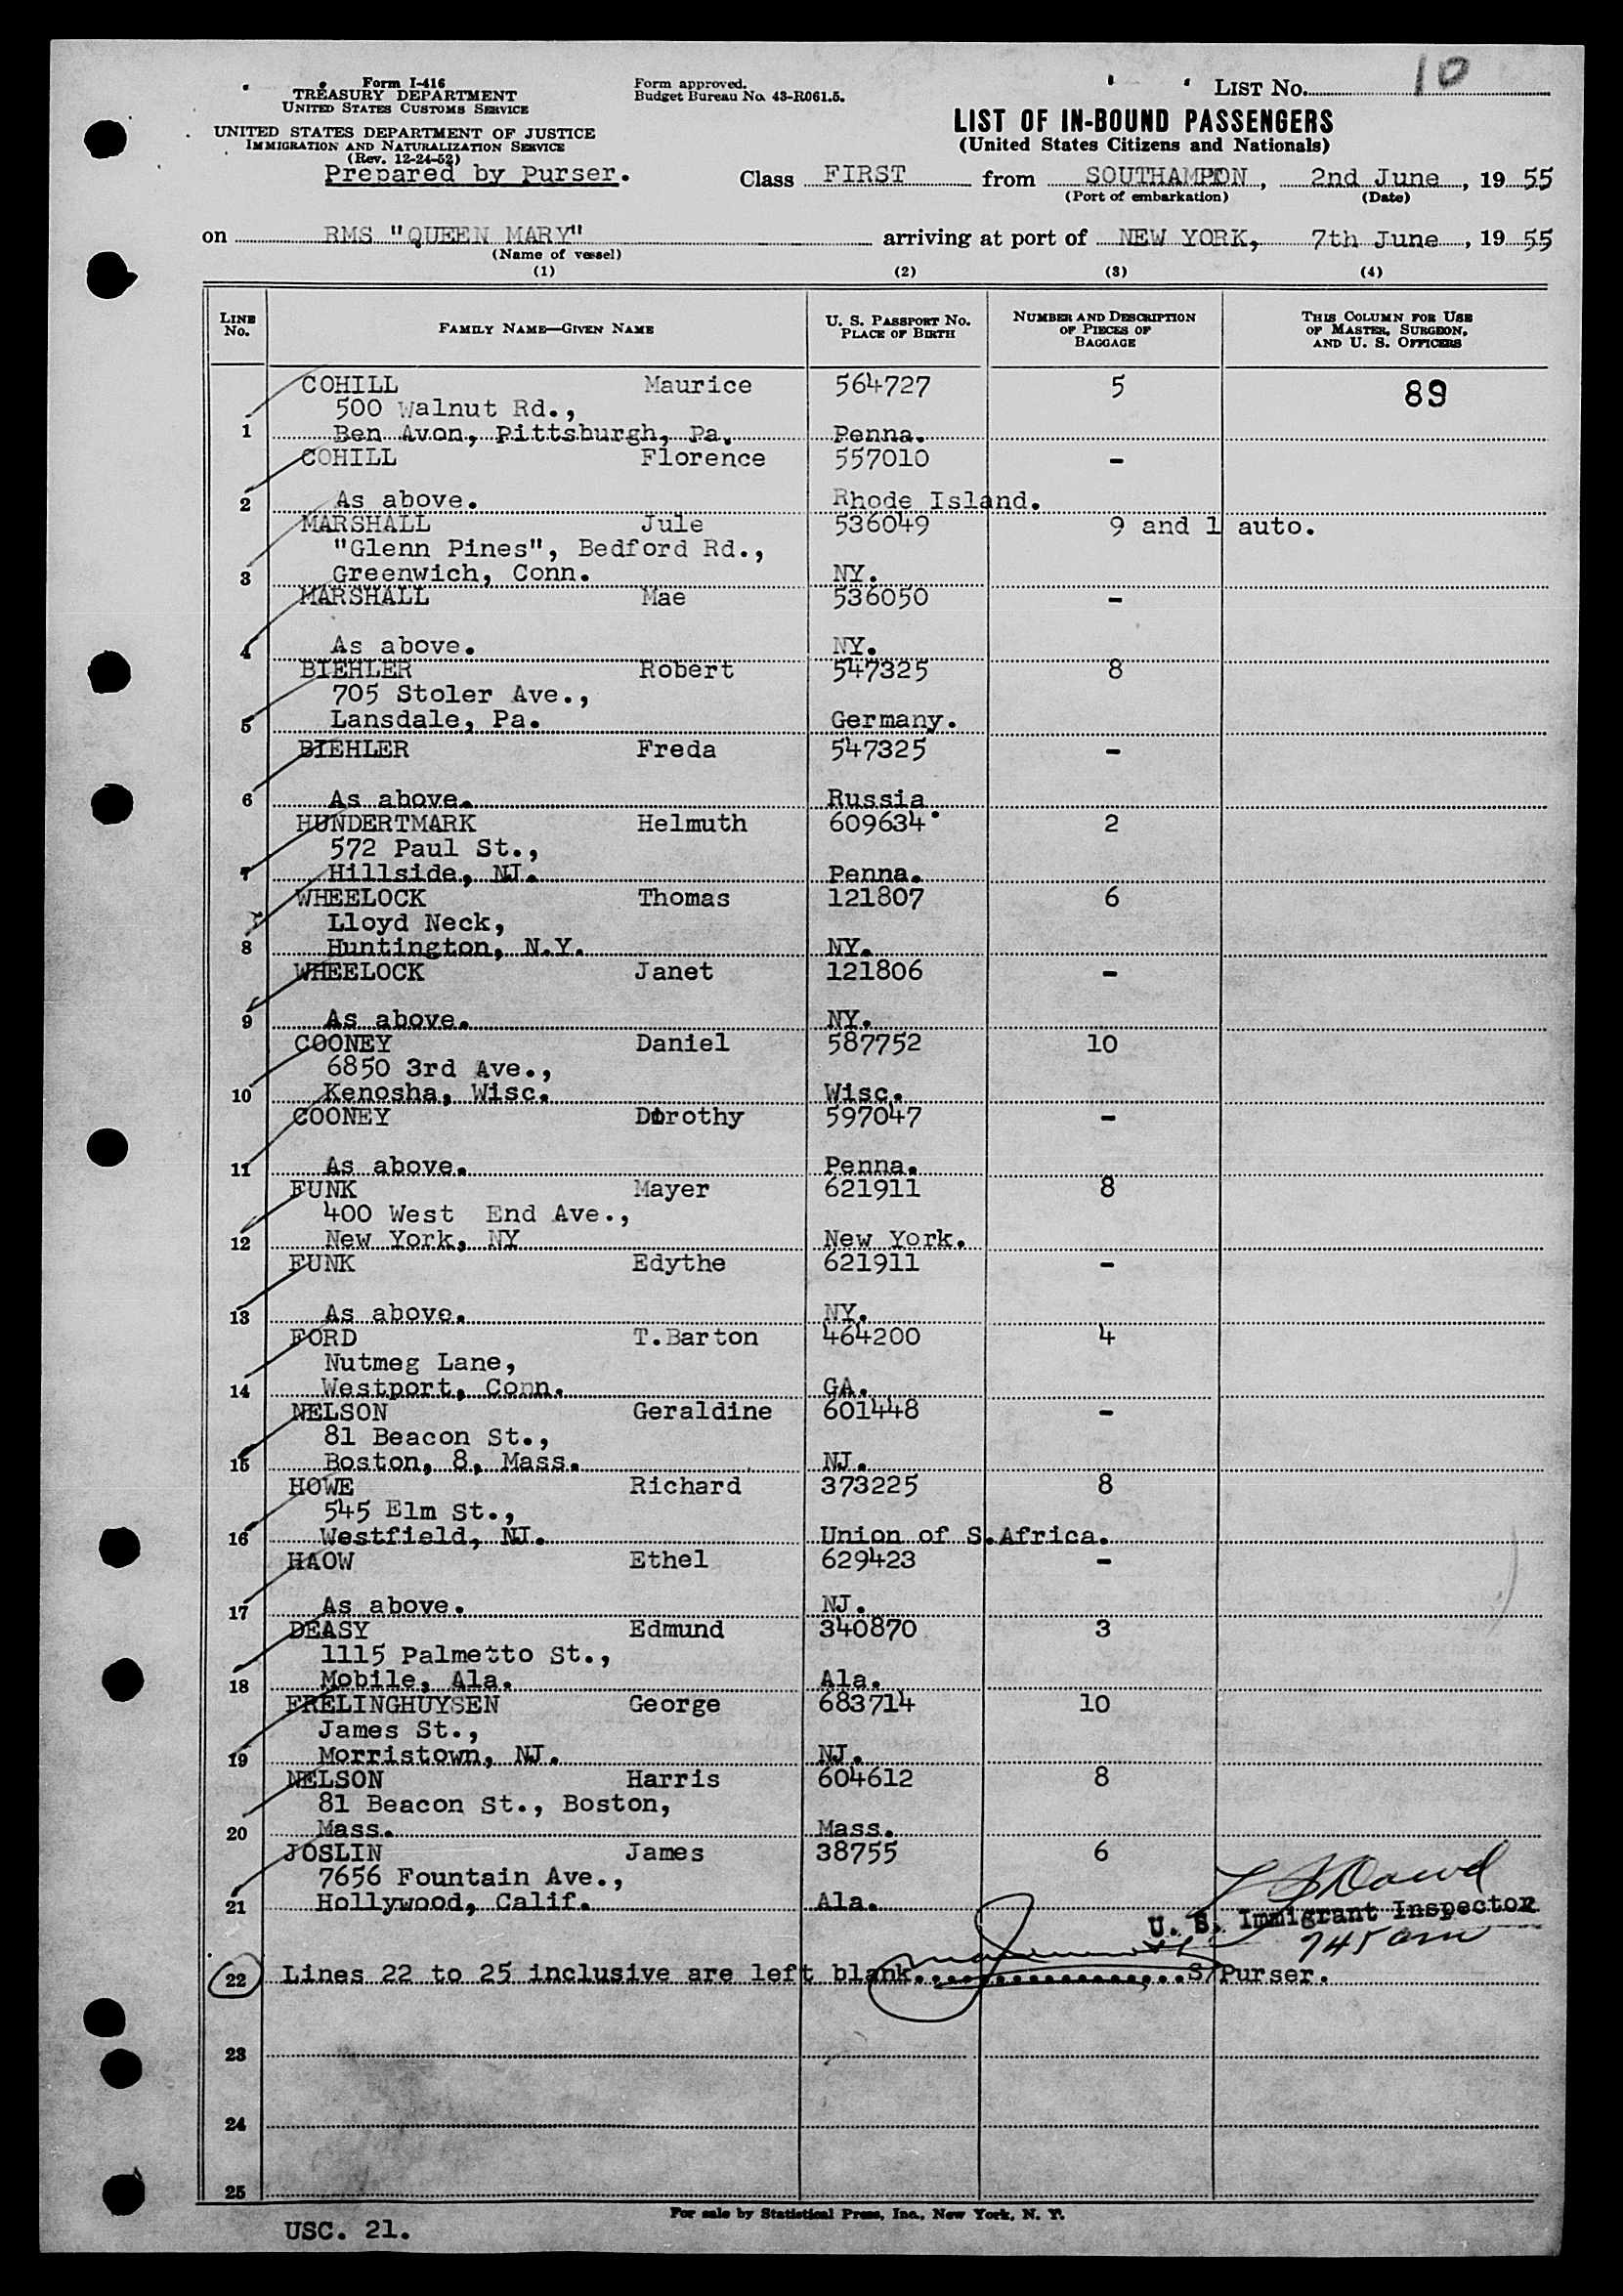 Form I-416
TREASURY DEPARTMENT
UNITED STATES CUSTOMS SERVICE
UNITED STATES DEPARTMENT OF JUSTICE
IMMIGRATION AND NATURALIZATION SERVICE
(Rev. 12-24-52)
Prepared by Purser.
Form approved.
Budget Bureau No. 43-R061.5.
LIST No. 10
LIST OF IN-BOUND PASSENGERS
(United States Citizens and Nationals)
Class FIRST from SOUTHAMPTON, 2nd June, 19 55
(Port of embarkation) (Date)
on RMS "QUEEN MARY" arriving at port of NEW YORK, 7th June, 19 55
(Name of vessel)
(1) (2) (3) (4)
LINE No. FAMILY NAME—GIVEN NAME U. S. PASSPORT NO. PLACE OF BIRTH NUMBER AND DESCRIPTION OF PIECES OF BAGGAGE THIS COLUMN FOR USE OF MASTER, SURGEON, AND U. S. OFFICERS
COHILL Maurice 564727 5 89
500 Walnut Rd.,
1 Ben Avon, Pittsburgh, Pa. Penna.
COHILL Florence 557010 -
2 As above. Rhode Island.
MARSHALL Jule 536049 9 and 1 auto.
"Glenn Pines", Bedford Rd.,
3 Greenwich, Conn. NY.
MARSHALL Mae 536050 -
4 As above. NY.
BIEHLER Robert 547325 8
705 Stoler Ave.,
5 Lansdale, Pa. Germany.
BIEHLER Freda 547325 -
6 As above. Russia
HUNDERTMARK Helmuth 609634 2
572 Paul St.,
7 Hillside, NJ. Penna.
WHEELOCK Thomas 121807 6
Lloyd Neck,
8 Huntington, N.Y. NY.
WHEELOCK Janet 121806 -
9 As above. NY.
COONEY Daniel 587752 10
6850 3rd Ave.,
10 Kenosha, Wisc. Wisc.
COONEY Dorothy 597047 -
11 As above. Penna.
FUNK Mayer 621911 8
400 West End Ave.,
12 New York, NY New York.
FUNK Edythe 621911 -
13 As above. NY.
FORD T.Barton 464200 4
Nutmeg Lane,
14 Westport, Conn. GA.
NELSON Geraldine 601448 -
81 Beacon St.,
15 Boston, 8, Mass. NJ.
HOWE Richard 373225 8
545 Elm St.,
16 Westfield, NJ. Union of S.Africa.
HAOW Ethel 629423 -
17 As above. NJ.
DEASY Edmund 340870 3
1115 Palmetto St.,
18 Mobile, Ala. Ala.
FRELINGHUYSEN George 683714 10
James St.,
19 Morristown, NJ. NJ.
NELSON Harris 604612 8
81 Beacon St., Boston,
20 Mass. Mass.
JOSLIN James 38755 6
7656 Fountain Ave.,
21 Hollywood, Calif. Ala.
U. S. Immigrant Inspector
745 am
22 Lines 22 to 25 inclusive are left blank. S/Purser.
23
24
25
For sale by Statistical Press, Inc., New York, N. Y.
USC. 21.